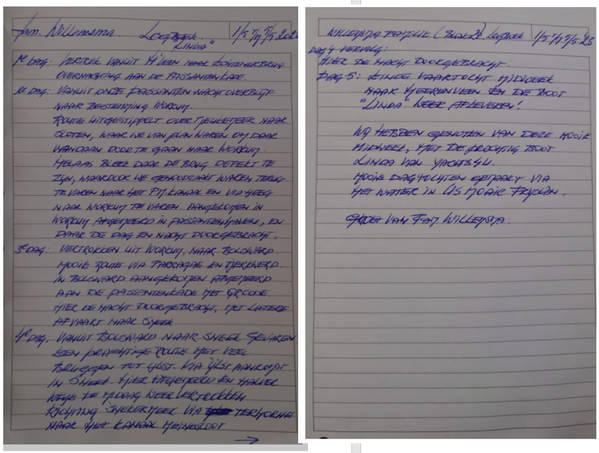 Fam. Willemsma Logboek "Linda" 1/5 t/m 5/5 2023
1e Dag: Vertrek vanuit
overnachting aan de passantenkade.
2e Dag: Vanuit onze passanten nacht overblijf
naar bestemming Workum.
Route uitgestippeld over Tjeukemeer naar
Sloten, waar we van plan waren om daar
vandaan door te gaan naar Workum.
Helaas bleek daar de brug defect te
zijn, waardoor we genoodzaakt waren terug
te varen naar het PM kanaal en via Heeg
naar Workum te varen. Aangekomen in
Workum afgemeerd in passantenhaven, en
daar de dag en nacht doorgebracht.
3e Dag: Vertrokken uit Workum, naar Bolsward
mooie route via Parrega en Tjerkwerd.
In Bolsward aangekomen afgemeerd
aan de passantenkade het
hier de nacht doorgebracht, met latere
afvaart naar Sneek
4e Dag: Vanuit Bolsward naar Sneek gevaren
een prachtige route met veel
bruggen tot IJlst. Via IJlst aankomst
in Sneek. Hier afgemeerd en halver
wege de middag weer vertrokken
richting Sneekermeer via Terhorne
naar het kanaal
→
Willemsma Familie Logboek 1/5 t/m 5/5 23
Dag 4 vervolg:
hier de nacht doorgebracht.
Dag 5: Einde vaartocht midweek
naar Heerenveen en de boot
"Linda" weer afleveren!
Wij hebben genoten van deze mooie
midweek, met de prachtige boot
Linda van Yachts4U.
Mooie dagtochten gemaakt via
het water in Us Moaie Fryslân.
Groet van Fam Willemsma.